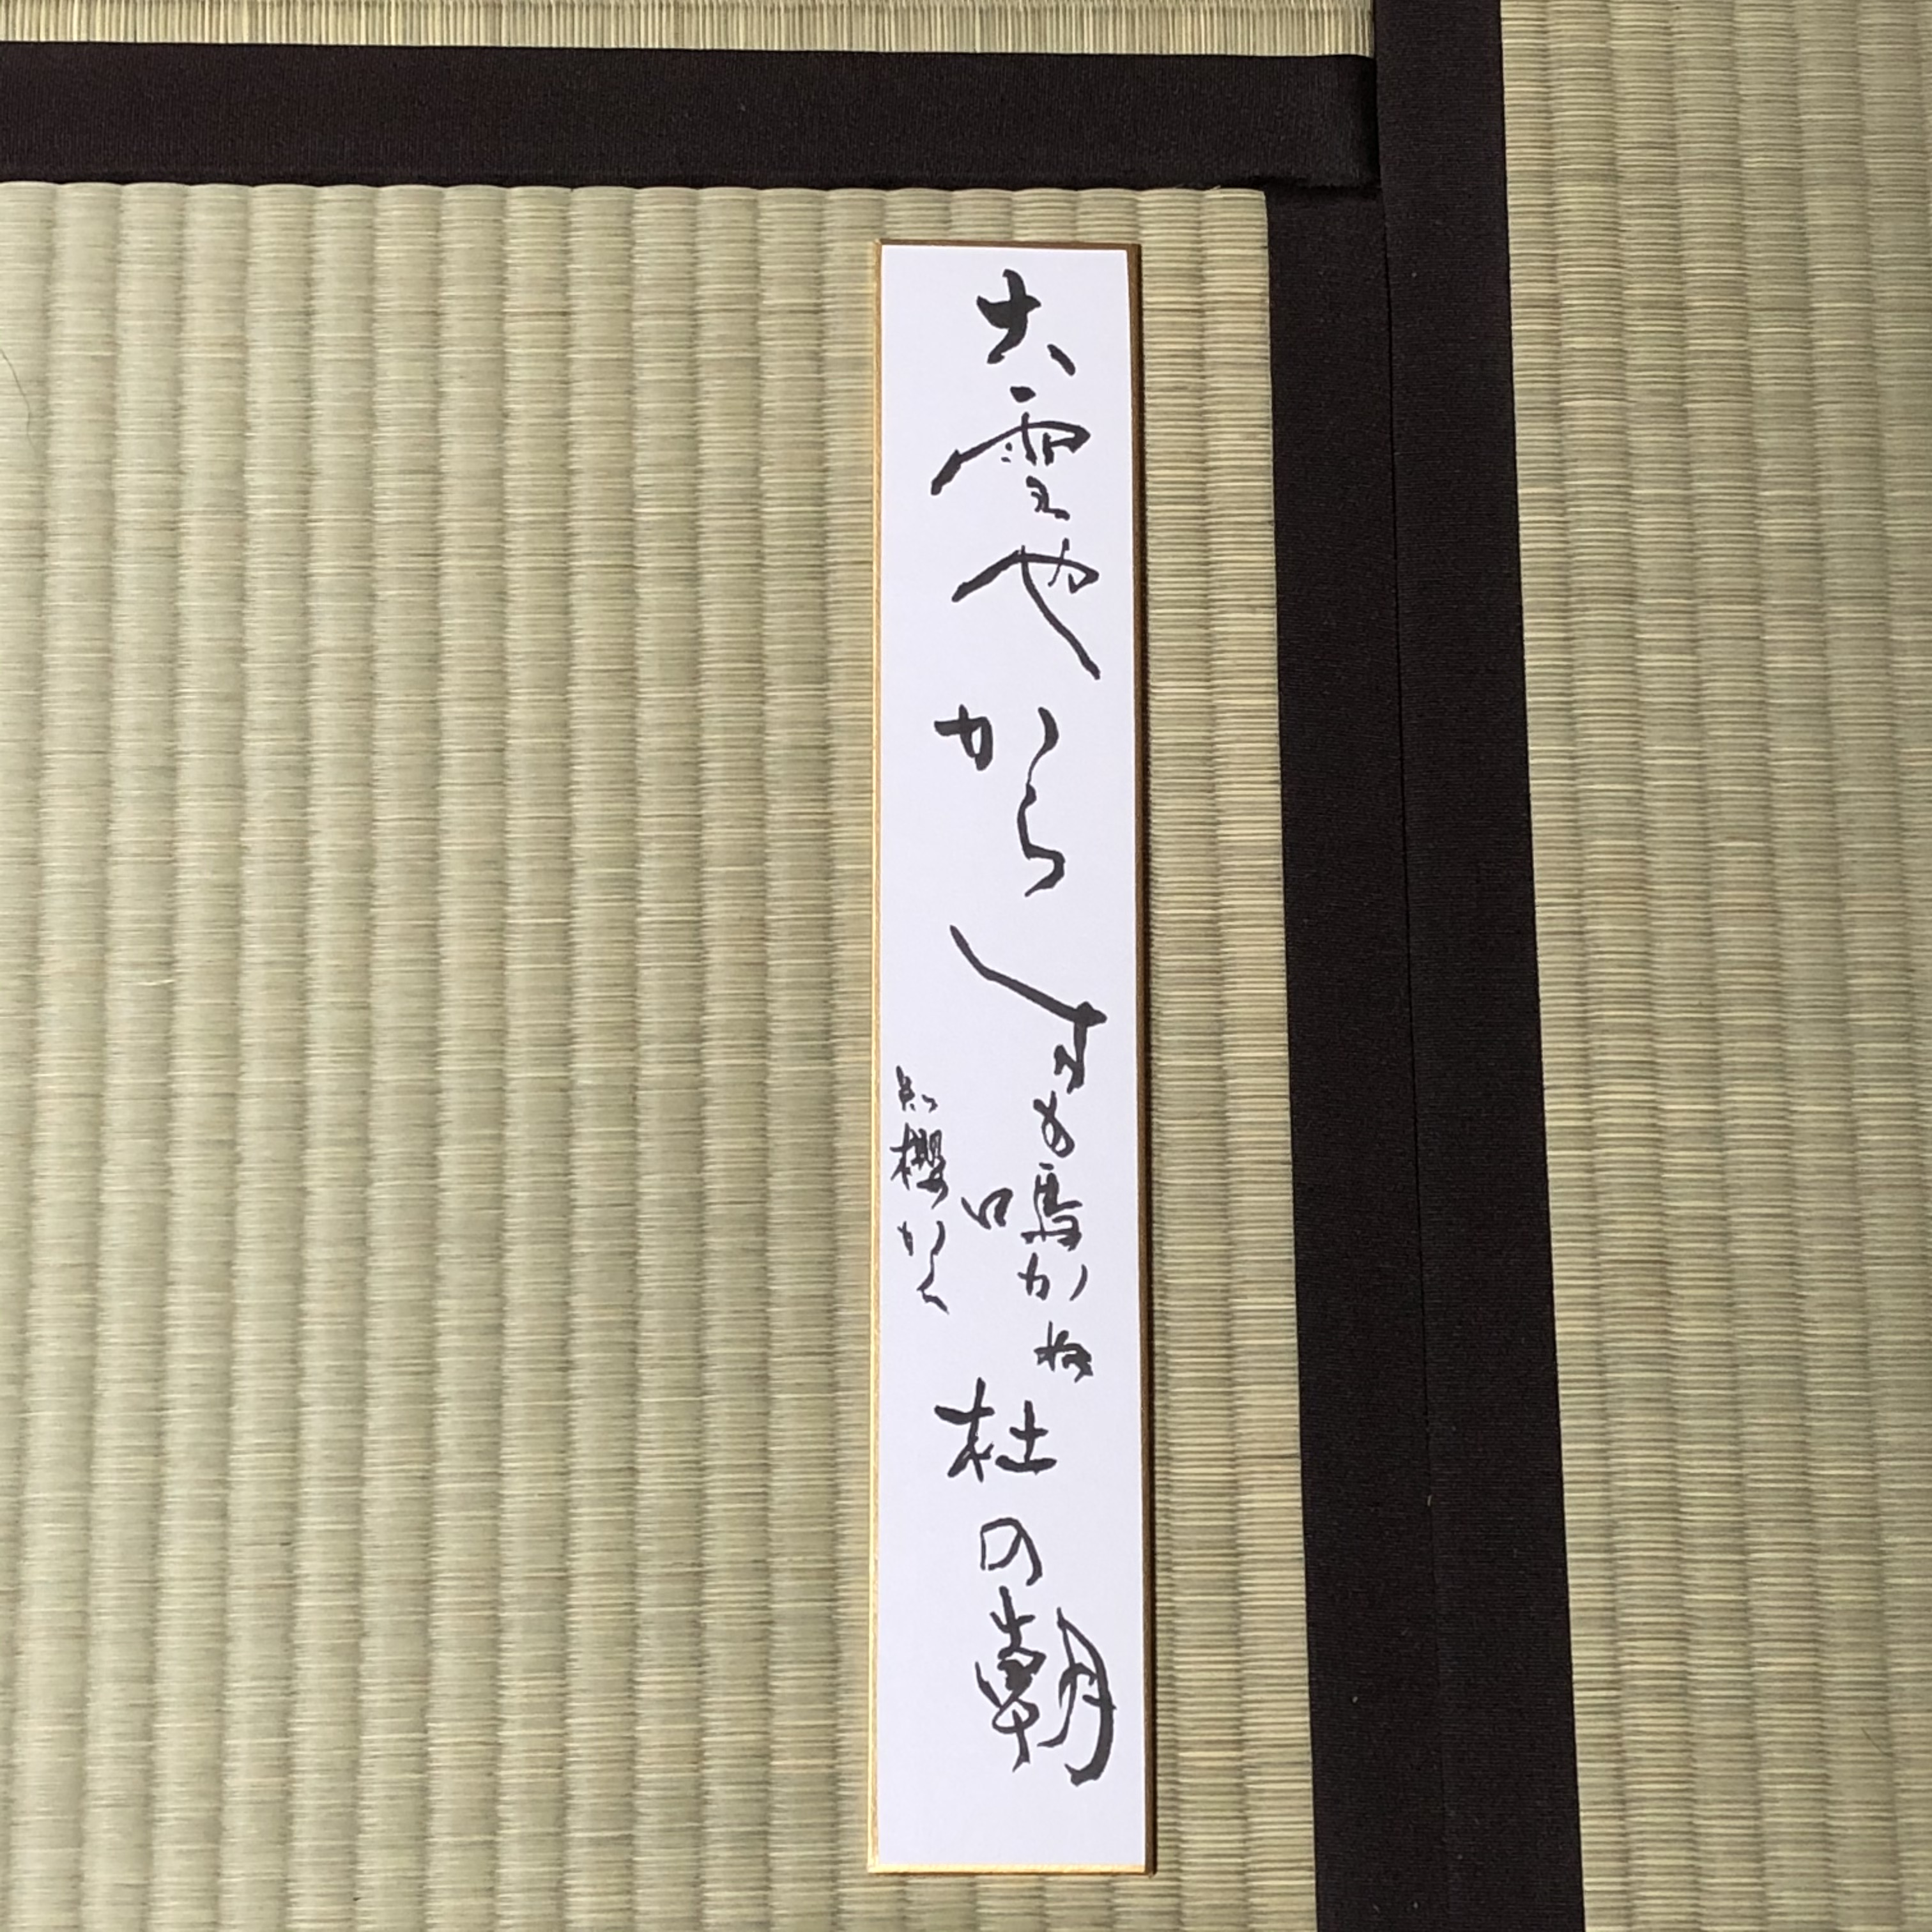 大雪やからすも鳴かぬ杜の朝
櫻かく